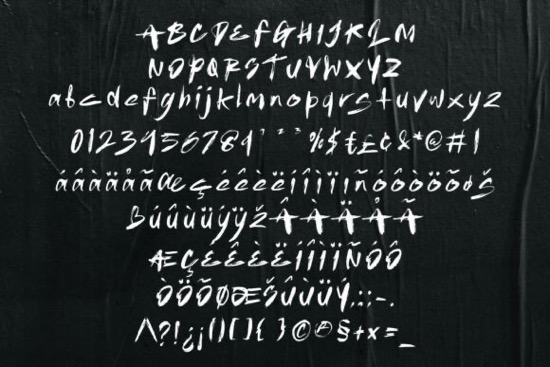 ABCDEFGHIJKLM
NOPQRSTUVWXYZ
abcdefghijklmnopqrstuvwxyz
0123456789 %$€£¢&*@#!
áâàäåãæçéêèëíîìïıñóôòöõøš
ßúûùüýÿžÁÂÀÄÅÃ
ÆÇÉÊÈËÍÎÌÏÑÓÔ
ÒÖÕØŒŠÛÙÜŸ.,:;-.
/\?!¿¡()[]{}©®§+×=_